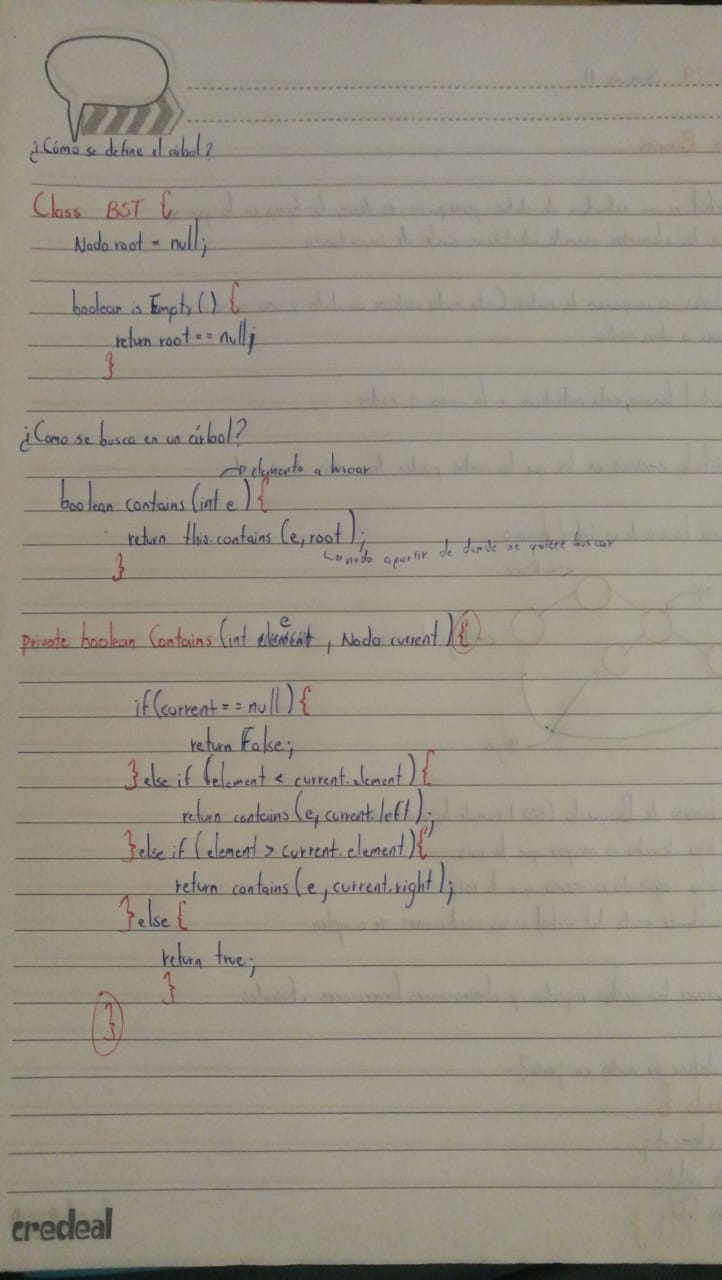 ¿Cómo se define el árbol?
Class BST {
Nodo root = null;
boolean is Empty () {
return root == null;
}
¿Como se busca en un árbol?
→ elemento a buscar
boolean contains (int e) {
return this.contains (e, root);
↳ nodo apartir de donde se quiere buscar
}
e
private boolean Contains (int element, Nodo current) {
if (current == null) {
return False;
} else if (element < current.element) {
return contains (e, current.left);
} else if (element > current.element) {
return contains (e, current.right);
} else {
return true;
}
}
credeal